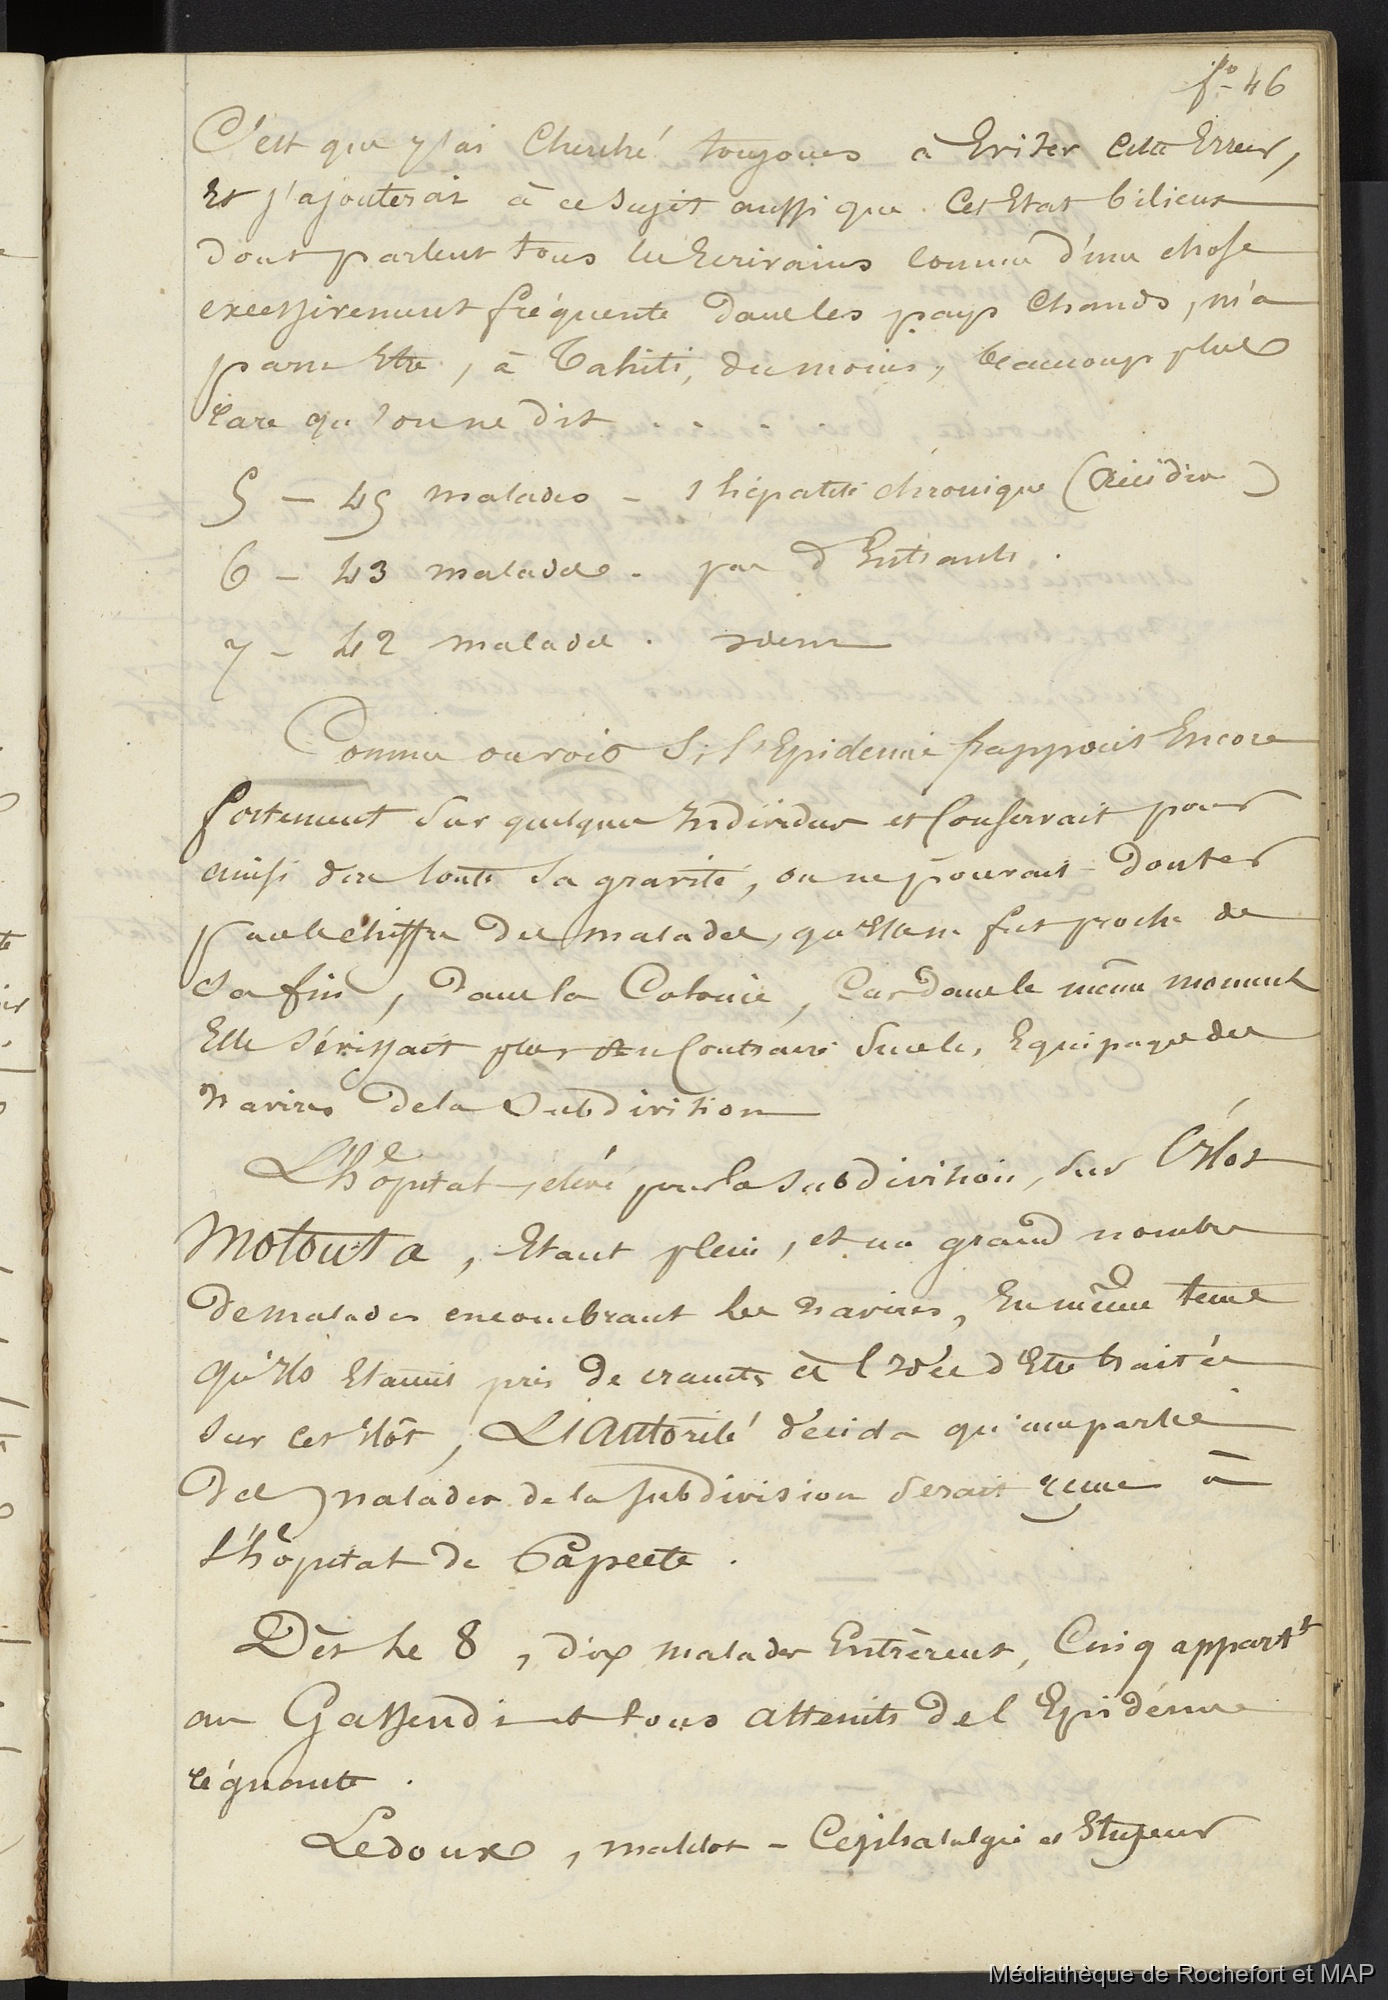 f° 46
C'est que j'ai Cherché toujours à Eviter cette Erreur,
Et j'ajouterai à ce sujet aussi que cet Etat bilieux
dont parlent tous les Ecrivains comme d'une chose
excessivement fréquente dans les pays Chauds, m'a
paru Etre, à Tahiti, du moins, beaucoup plus
rare qu'on ne dit . . . . .
5 – 45 malades – 1 hépatite chronique (Récidive)
6 – 43 malades . pas d'Entrants .
7 – 42 malades . idem
Comme on voit Si l'Epidémie frappait Encore
fortement Sur quelques Individus et Conservait pour
ainsi dire toute Sa gravité, on ne pouvait douter
par le chiffre des malades, qu'Elle ne fut proche de
Sa fin, dans la Colonie, Car dans le même moment
Elle Sévissait plus au Contraire Sur les Equipages des
Navires de la Subdivision
L'hôpital, élevé par la Subdivision, Sur l'Ilot
Motou-ta, Etant plein, et un grand nombre
de malades encombrant les Navires, En même tems
qu'Ils Etaient pris de crainte à l'Idée d'Etre traités
Sur cet Ilôt, L'Autorité décida qu'une partie
des Malades de la Subdivision serait reçue à
L'hôpital de Papeete .
Dès Le 8, dix malades Entrèrent, Cinq appart^t
au Gassendi et tous atteints de l'Epidémie
régnante .
Ledoux, matelot – Céphalalgie et Stupeur
Médiathèque de Rochefort et MAP